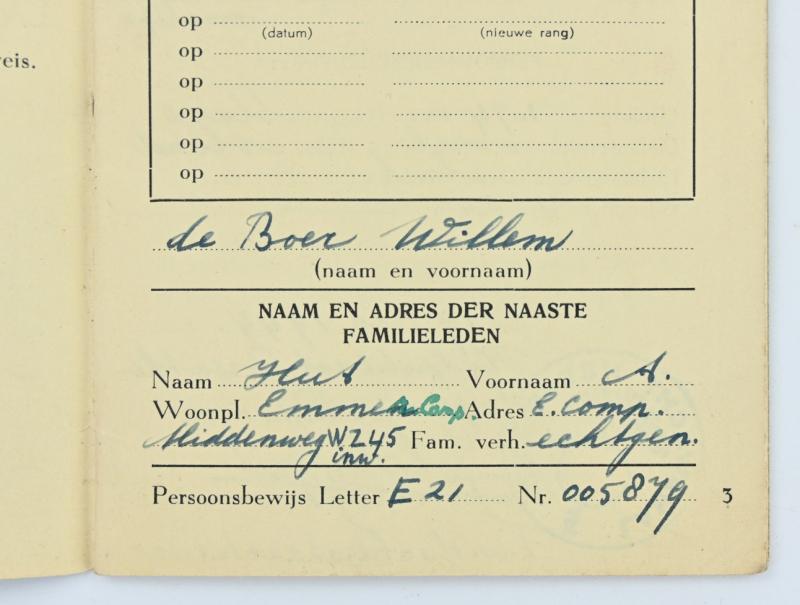 op
(datum) (nieuwe rang)
eis.
op
op
op
op
op
de Boer Willem
(naam en voornaam)
NAAM EN ADRES DER NAASTE
FAMILIELEDEN
Naam Hut Voornaam A.
Woonpl. Emmen Comp. Adres E. Comp.
Middenweg WZ45 Fam. verh. echtgen.
inw.
Persoonsbewijs Letter E 21 Nr. 005879 3